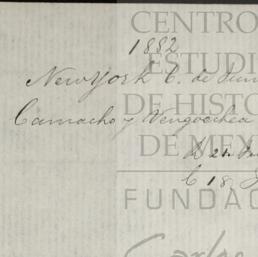 CENTRO
1882
ESTUDI
New York C. de
DE HISTO
Camacho y Vengoechea
DE ME
C 18
FUNDAC
Carlos